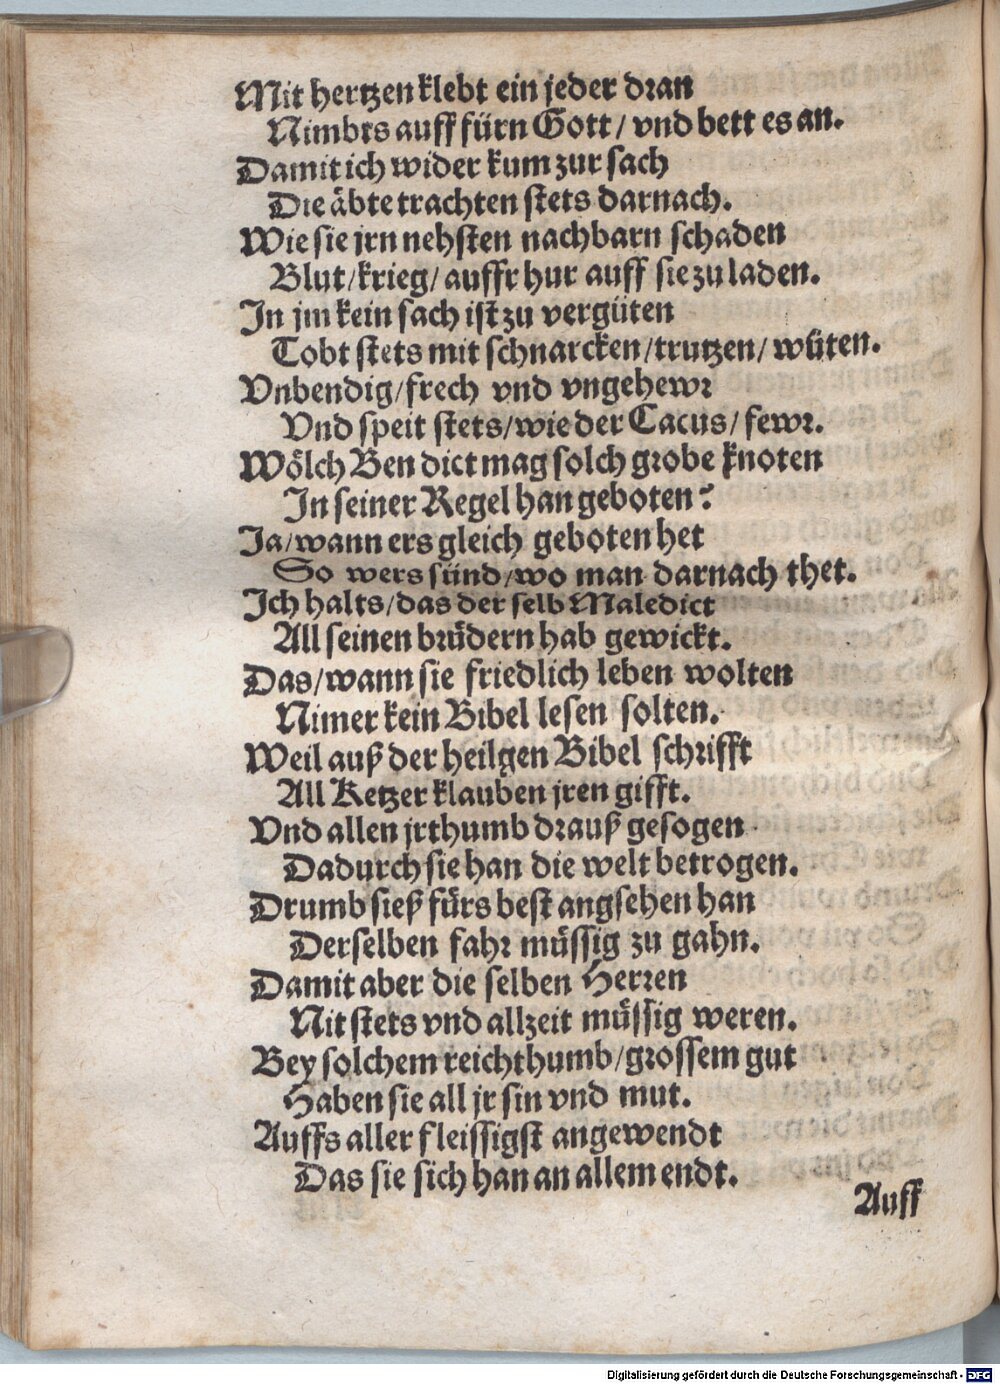 Mit hertzen klebt ein jeder dran
Nimbts auff fürn Gott / vnd bett es an.
Damit ich wider kum zur sach
Die äbte trachten stets darnach.
Wie sie jrn nehsten nachbarn schaden
Blut / krieg / auffrhur auff sie zu laden.
In jm kein sach ist zu vergüten
Tobt stets mit schnarcken / trutzen / wüten.
Vnbendig / frech vnd vngehewr
Vnd speit stets / wie der Cacus / fewr.
Wölch Bendict mag solch grobe knoten
In seiner Regel han geboten?
Ja / wann ers gleich geboten het
So wers sünd / wo man darnach thet.
Ich halts / das der selb Maledict
All seinen brüdern hab gewickt.
Das / wann sie friedlich leben wolten
Nimer kein Bibel lesen solten.
Weil auß der heilgen Bibel schrifft
All Ketzer klauben jren gifft.
Vnd allen jrthumb drauß gesogen
Dadurch sie han die welt betrogen.
Drumb sieß fürs best angsehen han
Derselben fahr müssig zu gahn.
Damit aber die selben Herren
Nit stets vnd allzeit müssig weren.
Bey solchem reichthumb / grossem gut
Haben sie all jr sin vnd mut.
Auffs aller fleissigst angewendt
Das sie sich han an allem endt.
Auff
Digitalisierung gefördert durch die Deutsche Forschungsgemeinschaft - DFG